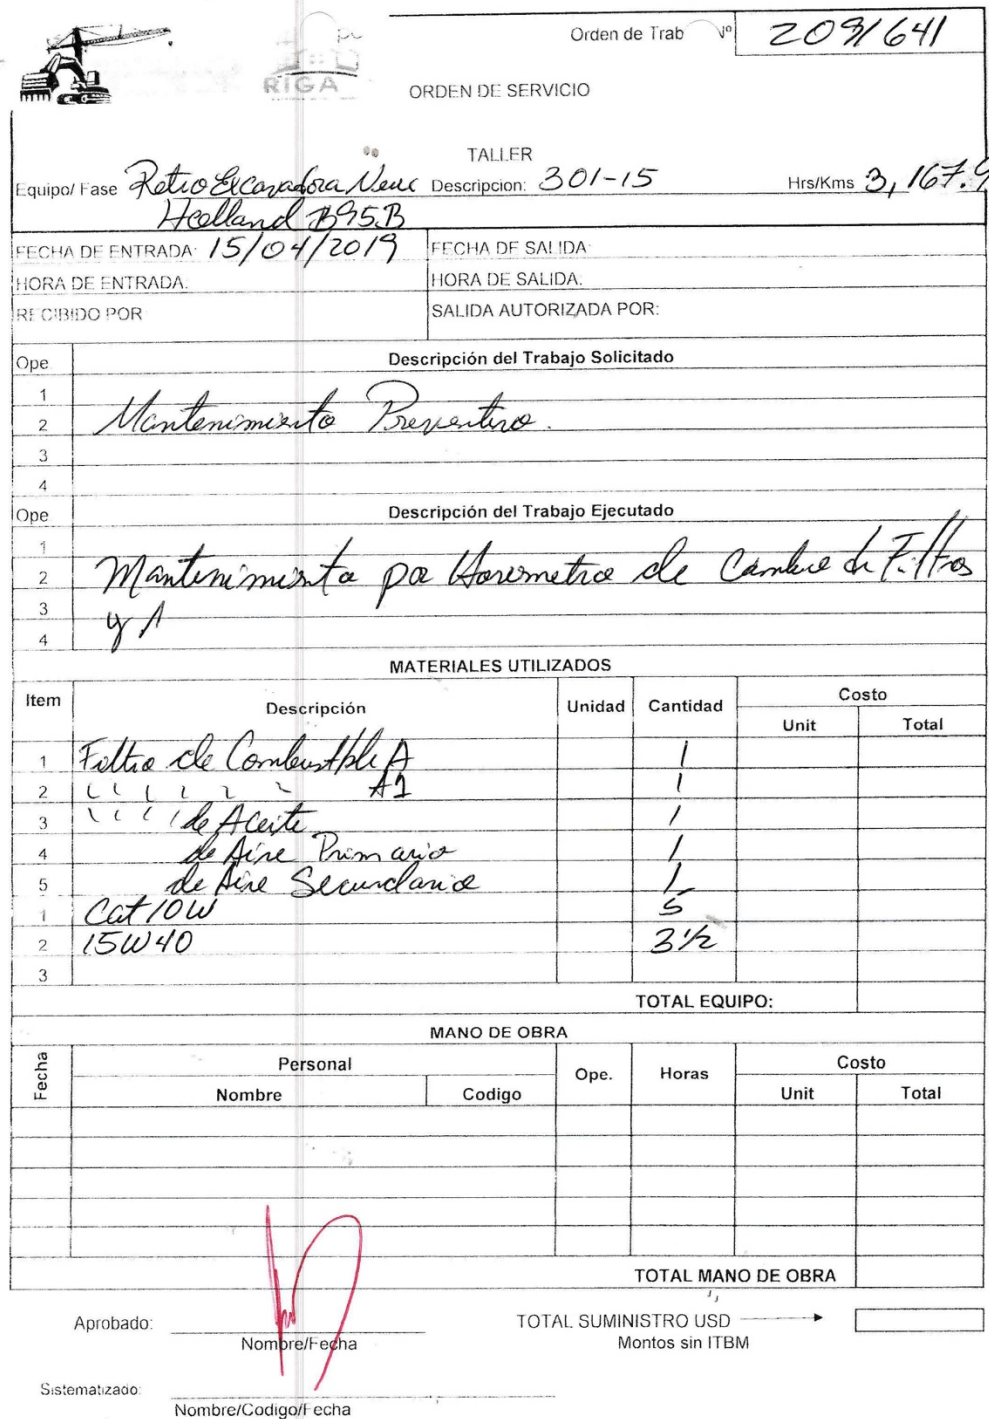 Orden de Trab Nº 2091641
RIGA
ORDEN DE SERVICIO
TALLER
Equipo/ Fase Retro Excavadora New Descripcion: 301-15 Hrs/Kms 3,167.9
Holland B95B
FECHA DE ENTRADA: 15/04/2019 FECHA DE SALIDA:
HORA DE ENTRADA: HORA DE SALIDA:
RECIBIDO POR SALIDA AUTORIZADA POR:
Ope Descripción del Trabajo Solicitado
1
2 Mantenimiento Preventivo.
3
4
Ope Descripción del Trabajo Ejecutado
1
2 Mantenimiento por Horometro de Cambio de Filtros
3 y A
4
MATERIALES UTILIZADOS
Item Descripción Unidad Cantidad Costo
Unit Total
1 Filtro de Combustible A 1
2 " " " " " A1 1
3 " " " " de Aceite 1
4 de Aire Primario 1
5 de Aire Secundario 1
1 Cat 10W 5
2 15W40 3 1/2
3
TOTAL EQUIPO:
MANO DE OBRA
Fecha Personal Ope. Horas Costo
Nombre Codigo Unit Total
TOTAL MANO DE OBRA
Aprobado: TOTAL SUMINISTRO USD
Nombre/Fecha Montos sin ITBM
Sistematizado:
Nombre/Codigo/Fecha